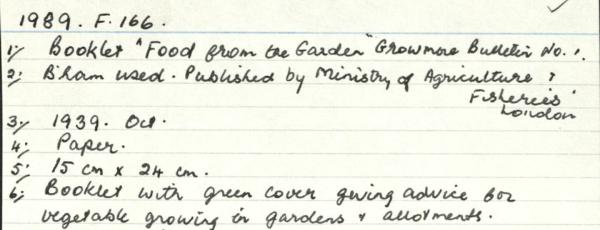 1989. F. 166.
1; Booklet "Food from the Garden" Growmore Bulletin No. 1.
2; B'ham used. Published by Ministry of Agriculture &
Fisheries'
London
3; 1939. Oct.
4; Paper.
5; 15 cm x 24 cm.
6; Booklet with green cover giving advice for
vegetable growing in gardens & allotments.